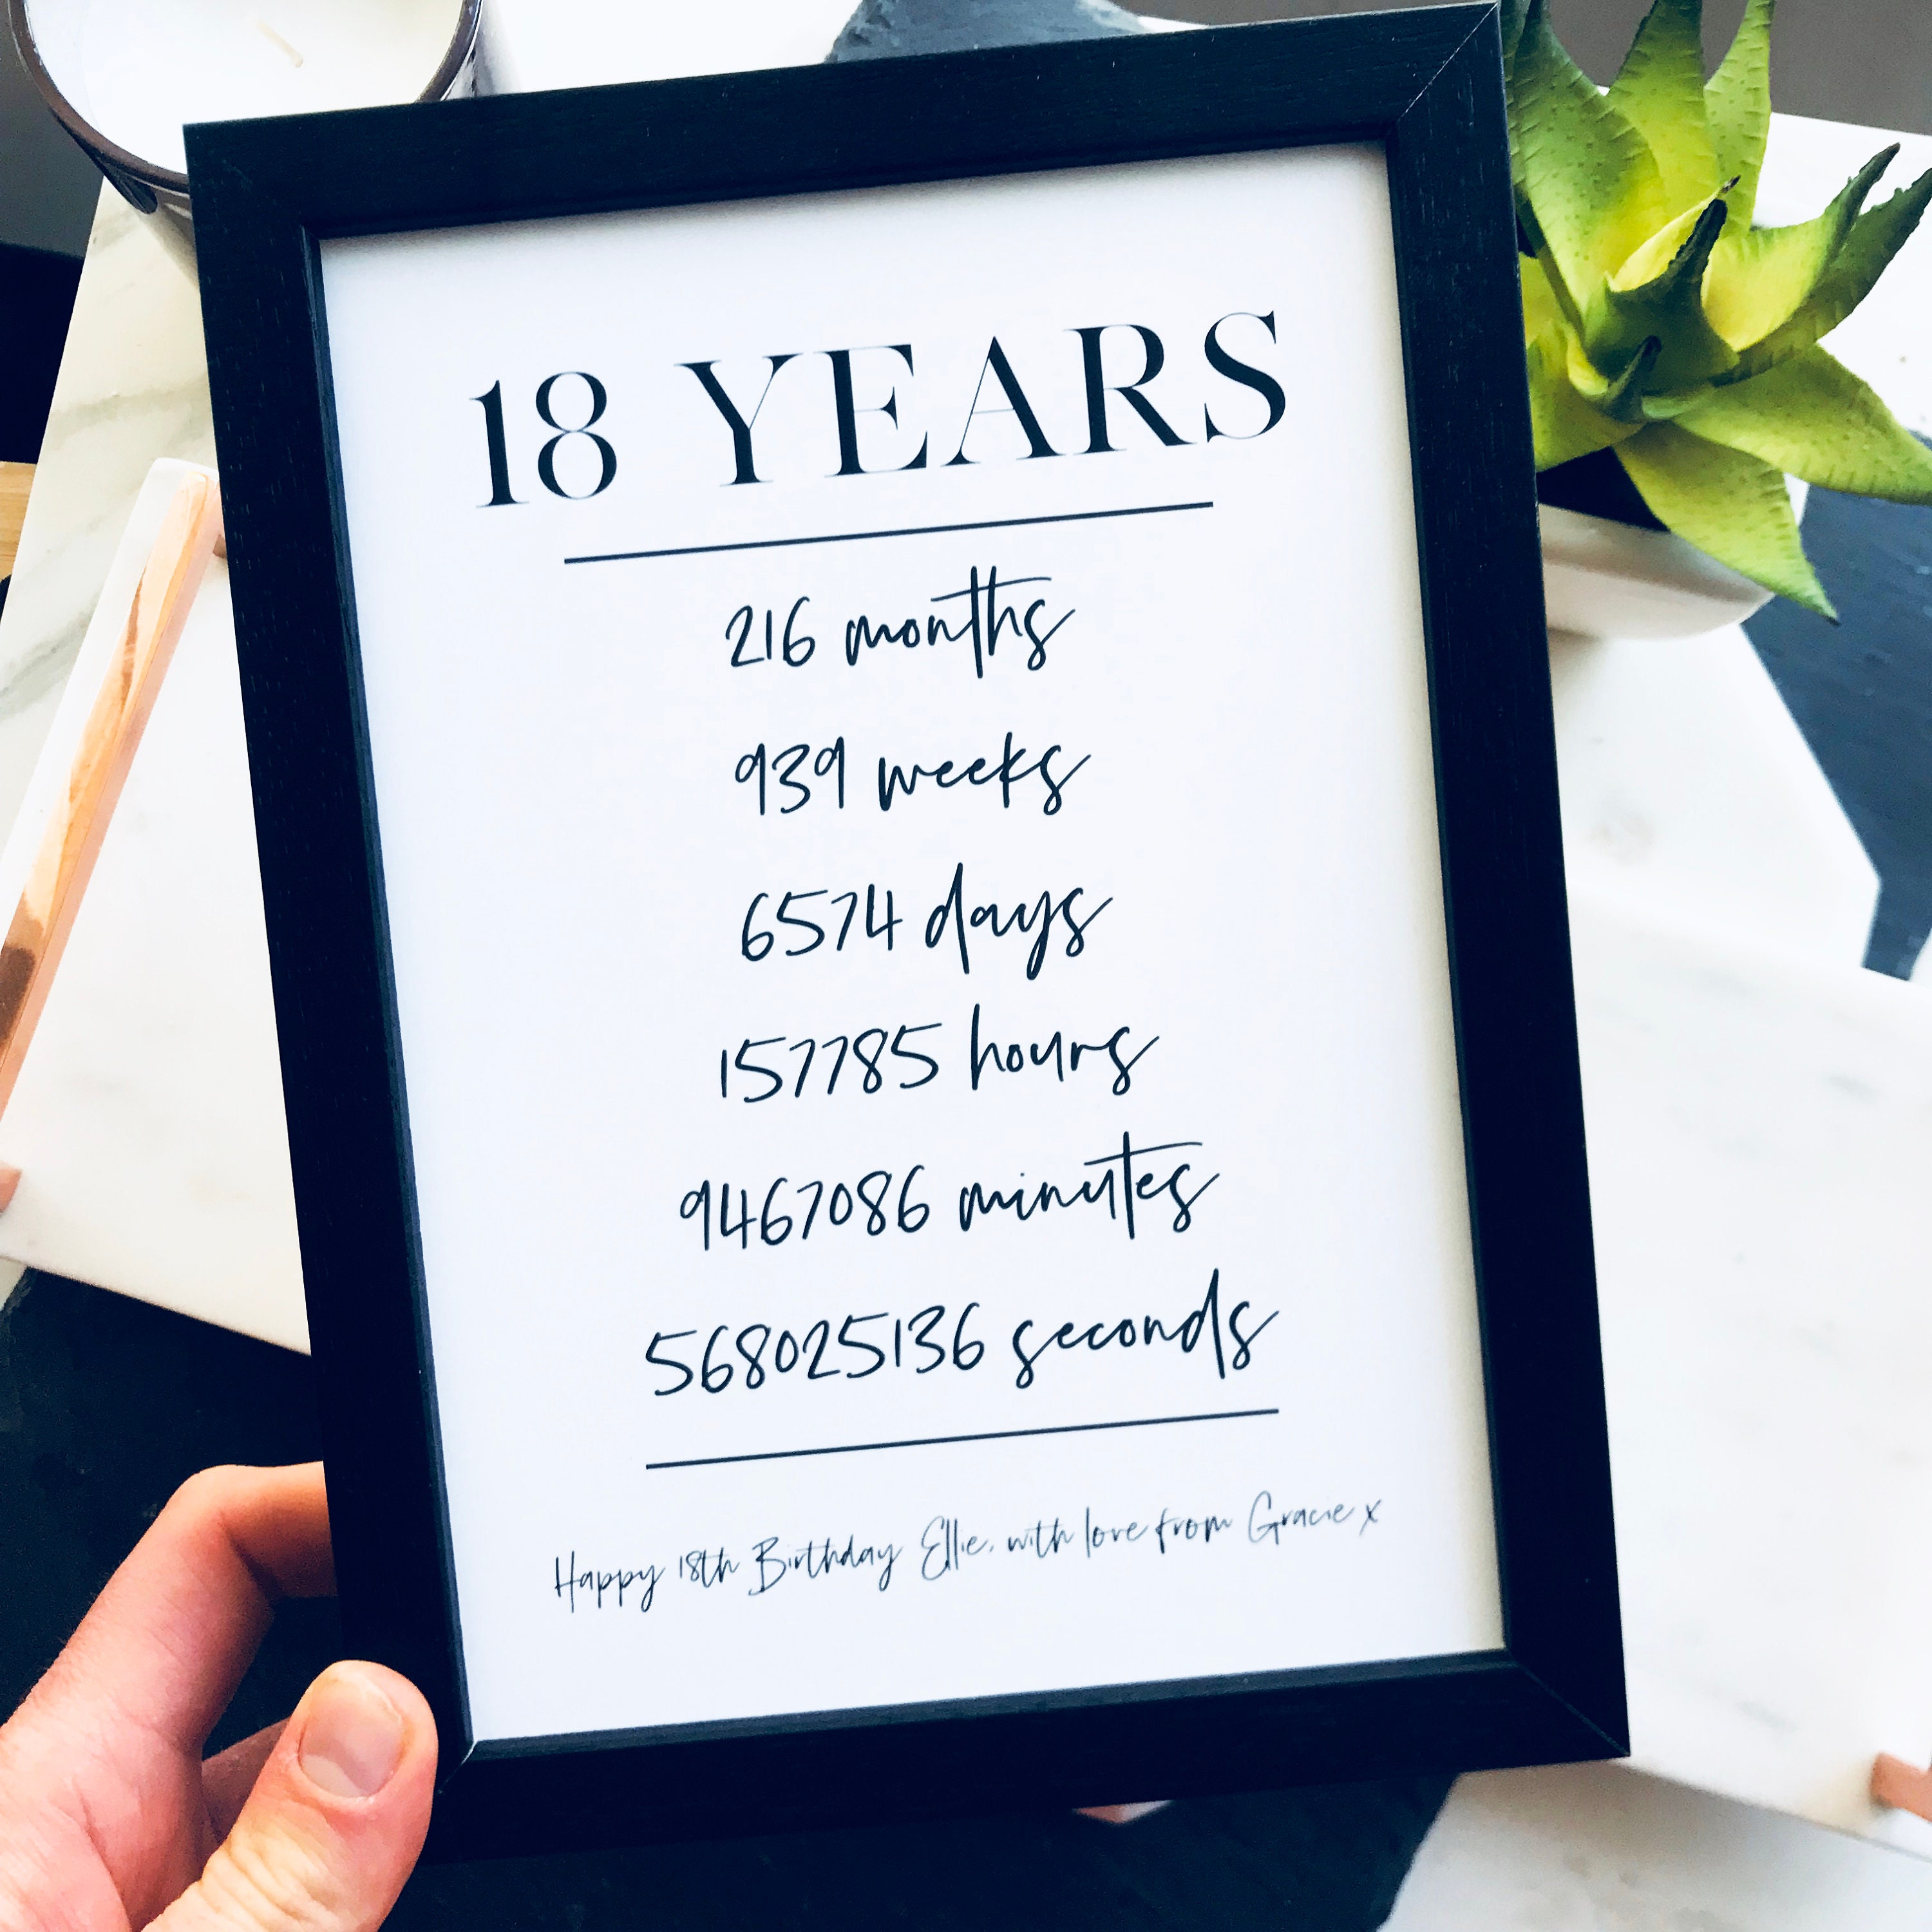 18 YEARS
216 months
939 weeks
6574 days
157785 hours
9467086 minutes
568025136 seconds
Happy 18th Birthday Ellie, with love from Gracie x